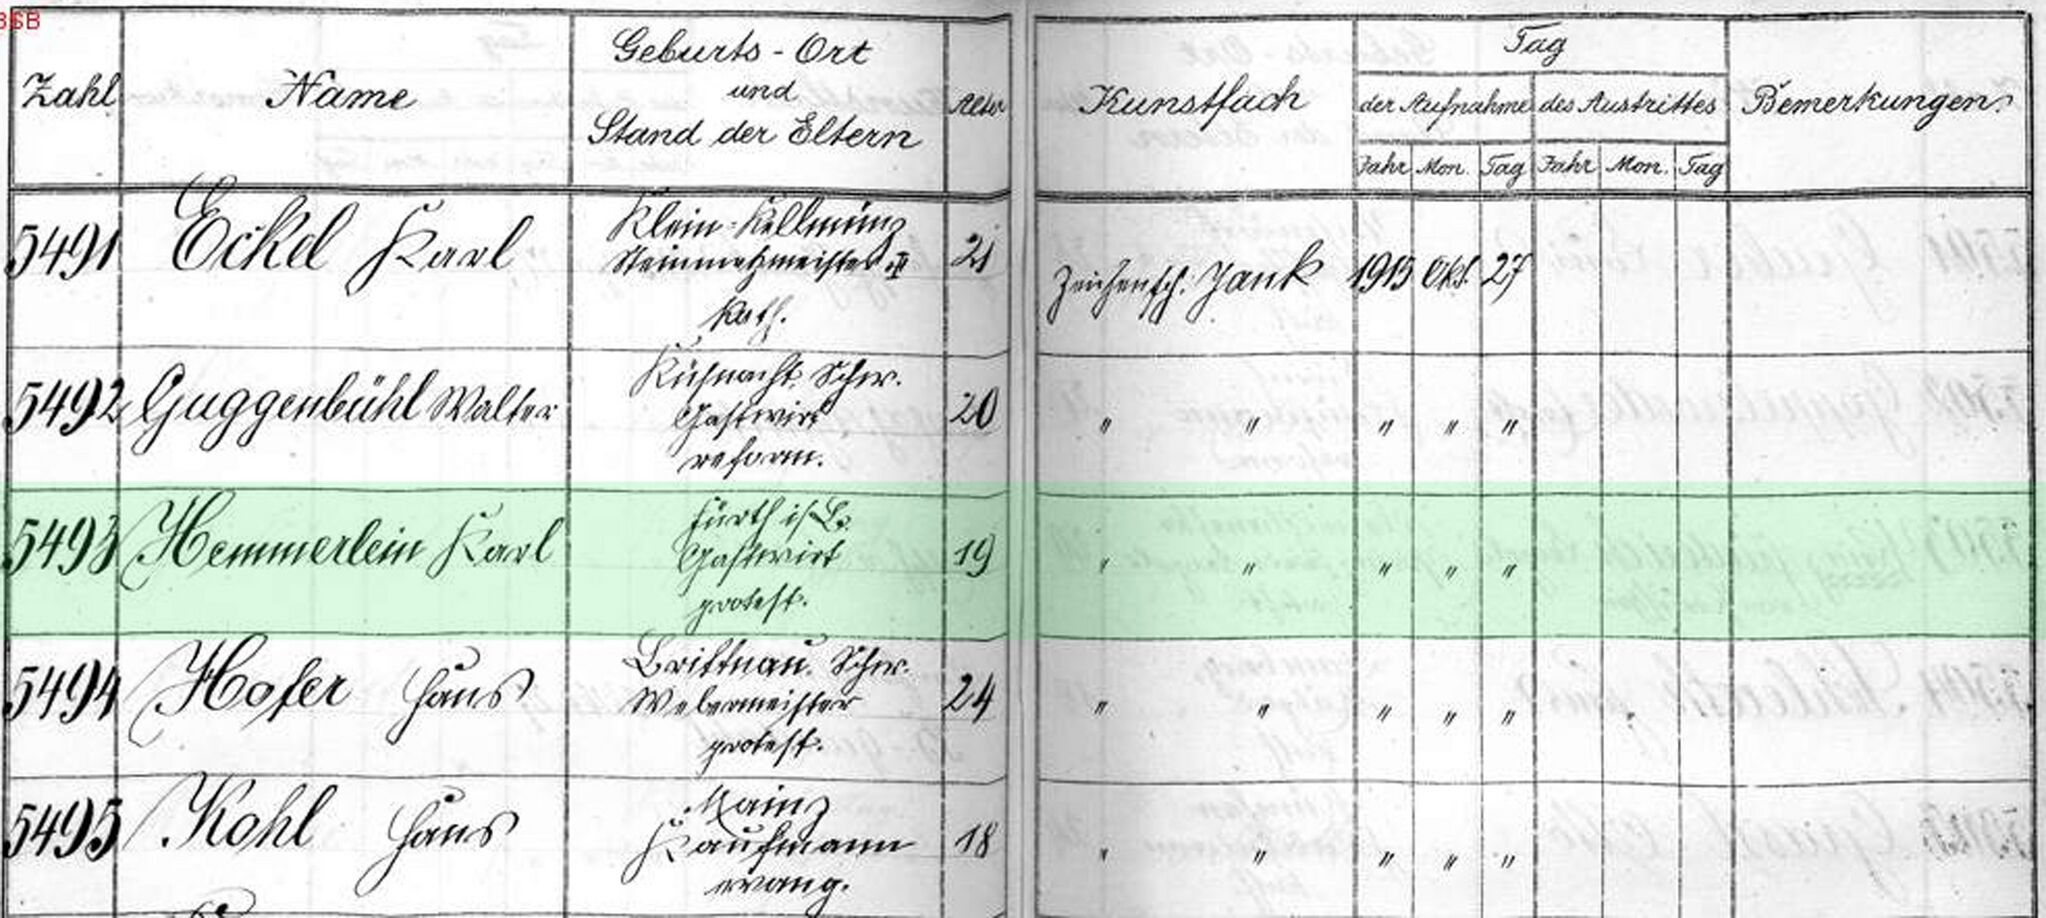 BSB
Zahl Name Geburts-Ort und Stand der Eltern Alter Kunstfach Tag der Aufnahme des Austrittes Bemerkungen.
Jahr Mon. Tag Jahr Mon. Tag
5491 Eckel Karl Klein-Kellmünz 21 Zeichensch. Jank 1915 Okt. 27
Steinmetzmeister
kath.
5492 Guggenbühl Walter Küsnacht Schw. 20 " " " " "
Gastwirt
reform.
5493 Hemmerlein Karl Fürth i/B. 19 " " " " "
Gastwirt
protest.
5494 Hofer Hans Brittnau. Schw. 24 " " " " "
Webermeister
protest.
5495 Kohl Hans Mainz 18 " " " " "
Kaufmann
evang.